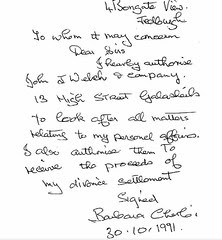 4 Bongate View.
Jedburgh
To whom it may concern
Dear Sirs
I hearby authorise
John J Welch & company.
13 High Street Galashiels
to look after all matters
relating to my personal affairs.
I also authorise them to
receive the proceeds of
my divorce settlement
Signed
Barbara
30.10.1991.